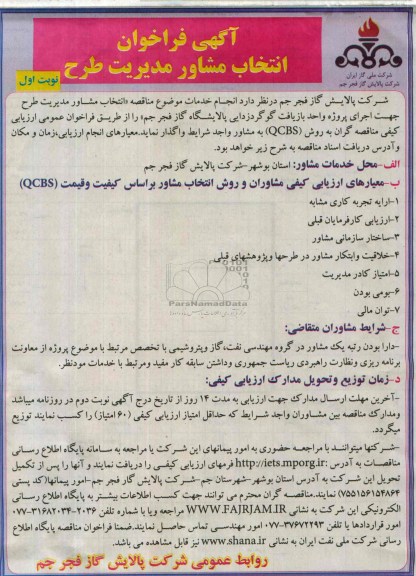 آگهی فراخوان
انتخاب مشاور مدیریت طرح
شرکت ملی گاز ایران
شرکت پالایش گاز فجر جم
نوبت اول
شرکت پالایش گاز فجر جم درنظر دارد انجام خدمات موضوع مناقصه «انتخاب مشاور مدیریت طرح
جهت اجرای پروژه واحد بازیافت گوگردزدایی پالایشگاه گاز فجر جم» را از طریق فراخوان عمومی ارزیابی
کیفی مناقصه گران به روش (QCBS) به مشاور واجد شرایط واگذار نماید.معیارهای انجام ارزیابی،زمان و مکان
وآدرس دریافت اسناد مناقصه به شرح زیر خواهد بود.
الف-محل خدمات مشاور: استان بوشهر-شرکت پالایش گاز فجر جم
ب-معیارهای ارزیابی کیفی مشاوران و روش انتخاب مشاور براساس کیفیت وقیمت (QCBS)
۱-ارایه تجربه کاری مشابه
۲-ارزیابی کارفرمایان قبلی
۳-ساختار سازمانی مشاور
۴-خلاقیت وابتکار مشاور در طرحها وپژوهشهای قبلی
۵-امتیاز کادر مدیریت
۶-بومی بودن
۷-توان مالی
ParsNamadData
ج-شرایط مشاوران متقاضی:
-دارا بودن رتبه یک مشاور در گروه مهندسی نفت،گاز وپتروشیمی با تخصص مرتبط با موضوع پروژه از معاونت
برنامه ریزی ونظارت راهبردی ریاست جمهوری وداشتن سابقه کار مفید ومرتبط با خدمات موردنظر.
د-زمان توزیع وتحویل مدارک ارزیابی کیفی:
-آخرین مهلت ارسال مدارک جهت ارزیابی به مدت ۱۴ روز از تاریخ درج آگهی نوبت دوم در روزنامه میباشد
ومدارک مناقصه بین مشاوران واجد شرایط که حداقل امتیاز ارزیابی کیفی (۶۰ امتیاز) را کسب نمایند توزیع
میگردد.
-شرکتها میتوانند با مراجعه حضوری به امور پیمانهای این شرکت یا مراجعه به سامانه پایگاه اطلاع رسانی
مناقصات به آدرس :http://iets.mporg.ir فرمهای ارزیابی کیفی را دریافت نمایند و آنها را پس از تکمیل
تحویل این شرکت به آدرس استان بوشهر -شهرستان جم -شرکت پالایش گاز فجر جم-امور پیمانها(کد پستی
۷۵۵۱۵۶۱۵۴۸۶۴) نمایند.مناقصه گران محترم می توانند جهت کسب اطلاعات بیشتر به پایگاه اطلاع رسانی
الکترونیکی این شرکت به نشانی WWW.FAJRJAM.IR مراجعه ویا با شماره تلفن ۲۰۳۶-۰۷۷-۳۱۶۸۲۰۳۴
امور قراردادها یا تلفن ۳۷۶۷۲۲۹۳-۰۷۷ امور مهندسی تماس حاصل نمایند.ضمنا فراخوان مناقصه پایگاه اطلاع
رسانی شرکت ملی نفت ایران به نشانی www.shana.ir نیز قابل مشاهده می باشد.
روابط عمومی شرکت پالایش گاز فجر جم